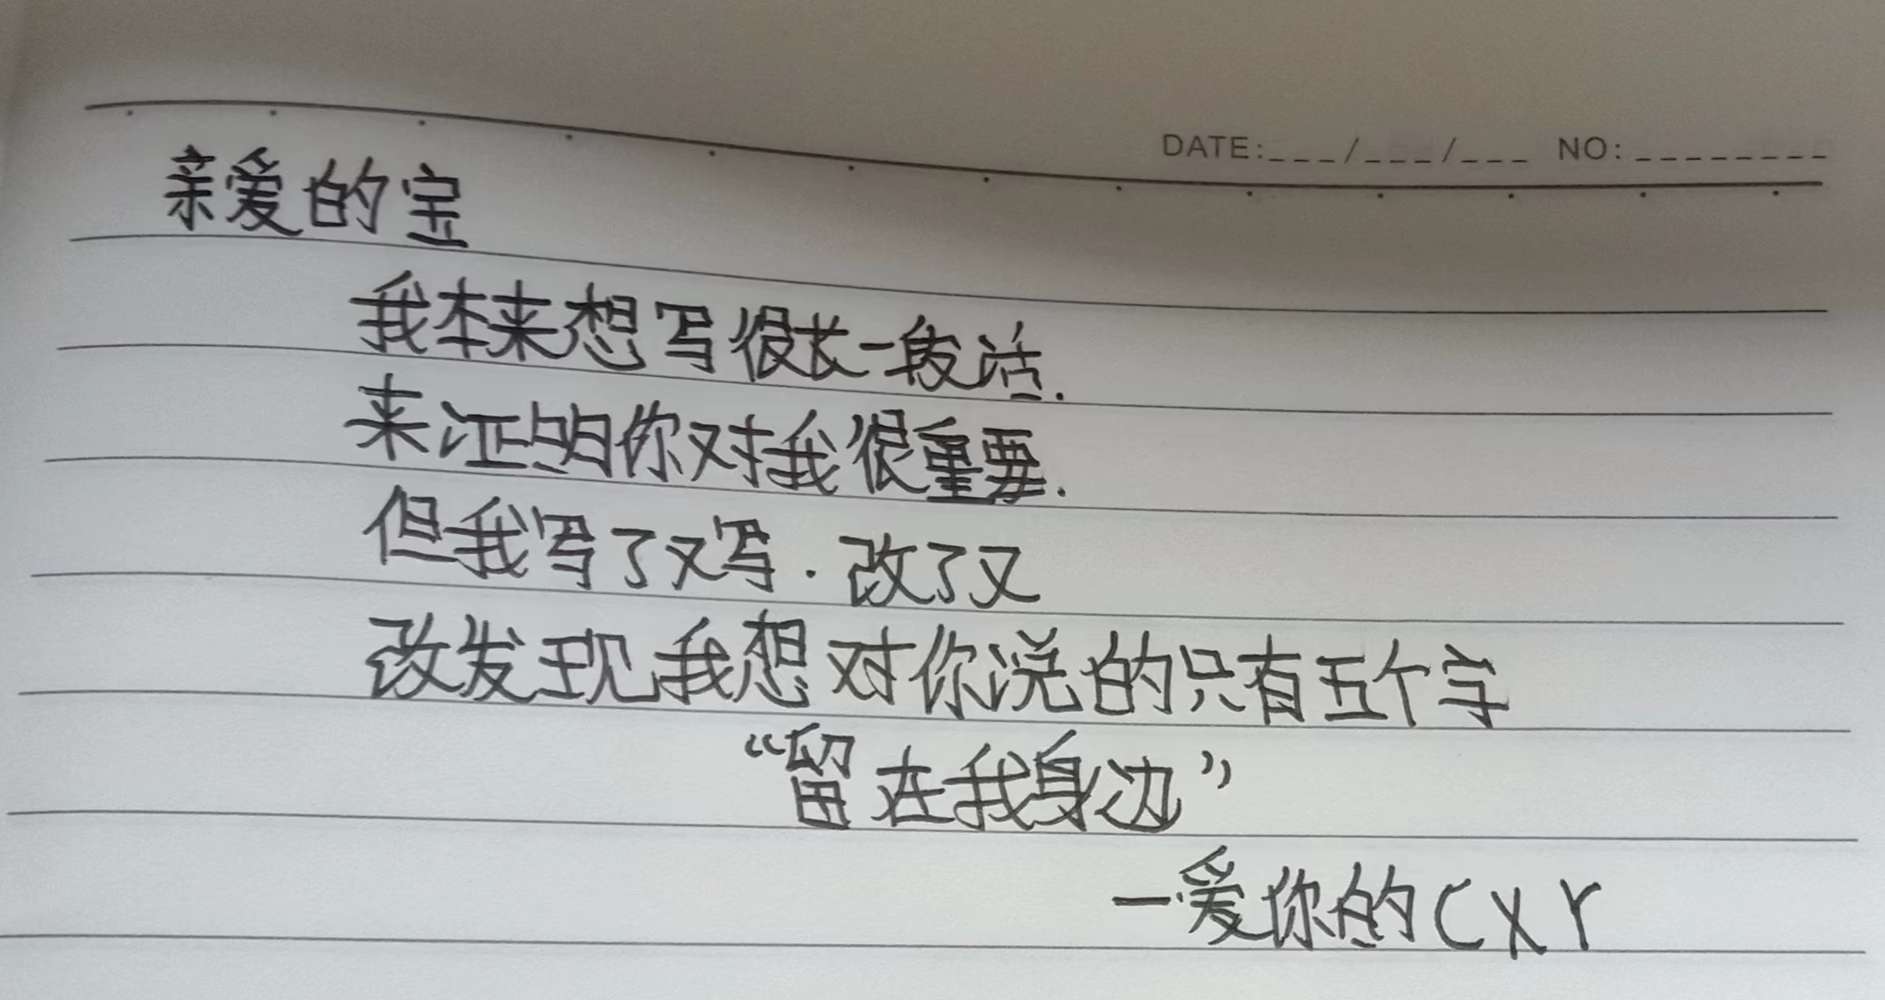 DATE:___/___/___ NO:________
亲爱的宝
我本来想写很长一段话.
来证明你对我很重要.
但我写了又写.改了又
改发现我想对你说的只有五个字
“留在我身边”
—爱你的CXY